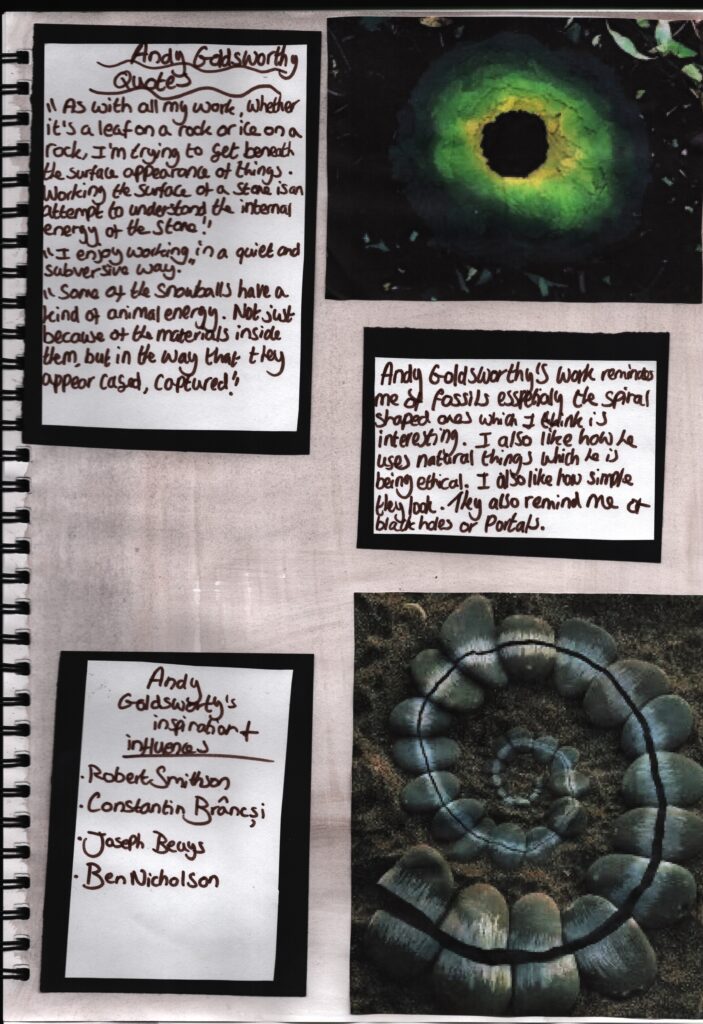 Andy Goldsworthy
Quotes
"As with all my work, whether
it's a leaf on a rock or ice on a
rock, I'm trying to get beneath
the surface appearance of things.
Working the surface of a stone is an
attempt to understand the internal
energy of the stone."
"I enjoy working in a quiet and
subversive way."
"Some of the snowballs have a
kind of animal energy. Not just
because of the materials inside
them, but in the way that they
appear caged, captured."
Andy Goldsworthy's work reminds
me of fossils esspecialy the spiral
shaped ones which I think is
interesting. I also like how he
uses natural things which he is
being ethical. I also like how simple
they look. They also remind me of
black holes or Portals.
Andy
Goldsworty's
inspiration +
influences
· Robert Smithson
· Constantin Brâncşi
· Joseph Beuys
· Ben Nicholson